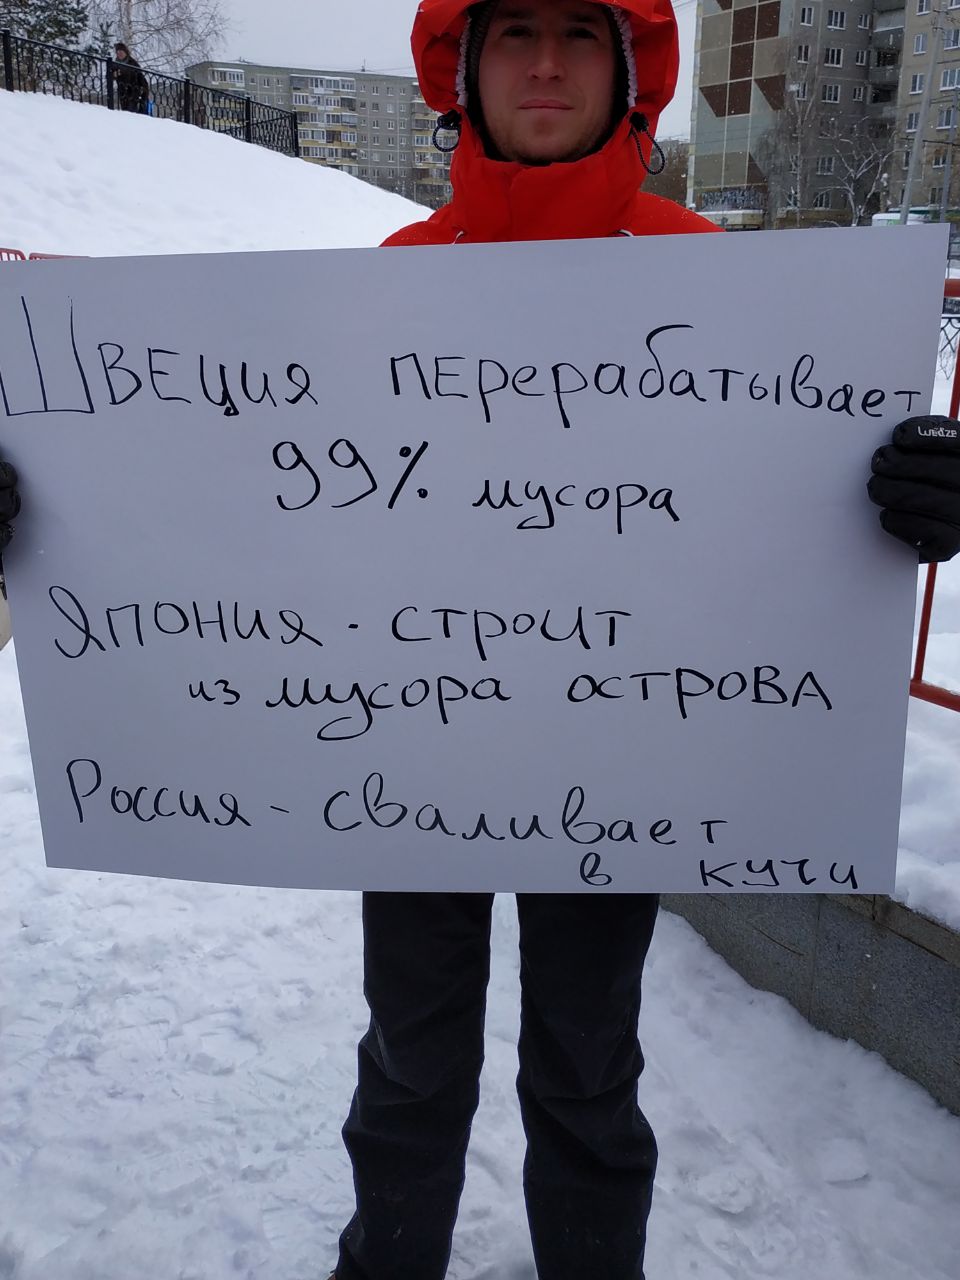 Швеция перерабатывает
99% мусора
Япония - строит
из мусора острова
Россия - сваливает
в кучи
wedze